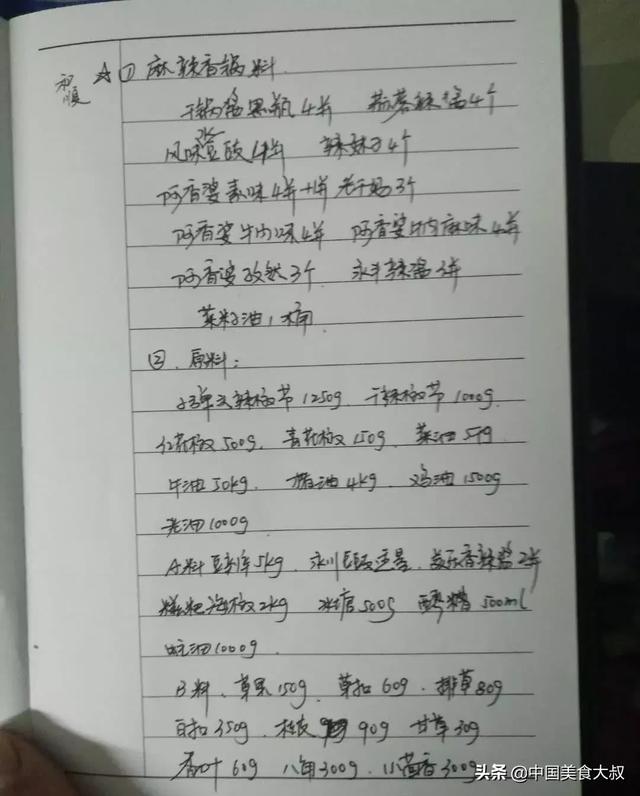 和顺
☆① 麻辣香锅料
干锅酱黑瓶4半 蒜蓉辣酱4个
风味豆豉4半 辣妹子4个
阿香婆素味4半+1半 老干妈3个
阿香婆牛肉味4半 阿香婆牛肉麻味4半
阿香婆孜然3个 永丰辣酱3半
菜籽油1桶
四、原料:
子弹头辣椒节1250g、干辣椒节1000g
红花椒500g、青花椒150g、菜油5kg
牛油50kg、猪油4kg、鸡油1500g
老油1000g
A料 豆瓣5kg、永川豆豉适量、香辣酱2半
糍粑海椒2kg 冰糖500g 醪糟500ml
蚝油1000g.
B料、草果150g、草扣60g、排草80g
白扣350g、桂皮90g 甘草30g
香叶60g 八角300g、小茴香300g
头条@中国美食大叔